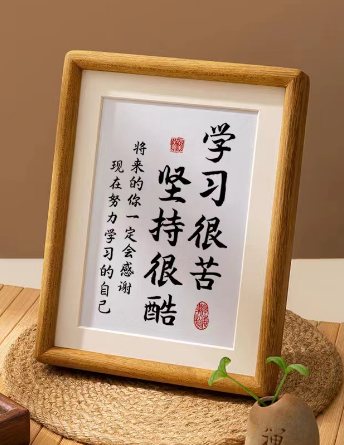 学习很苦
坚持很酷
将来的你一定会感谢
现在努力学习的自己
禅